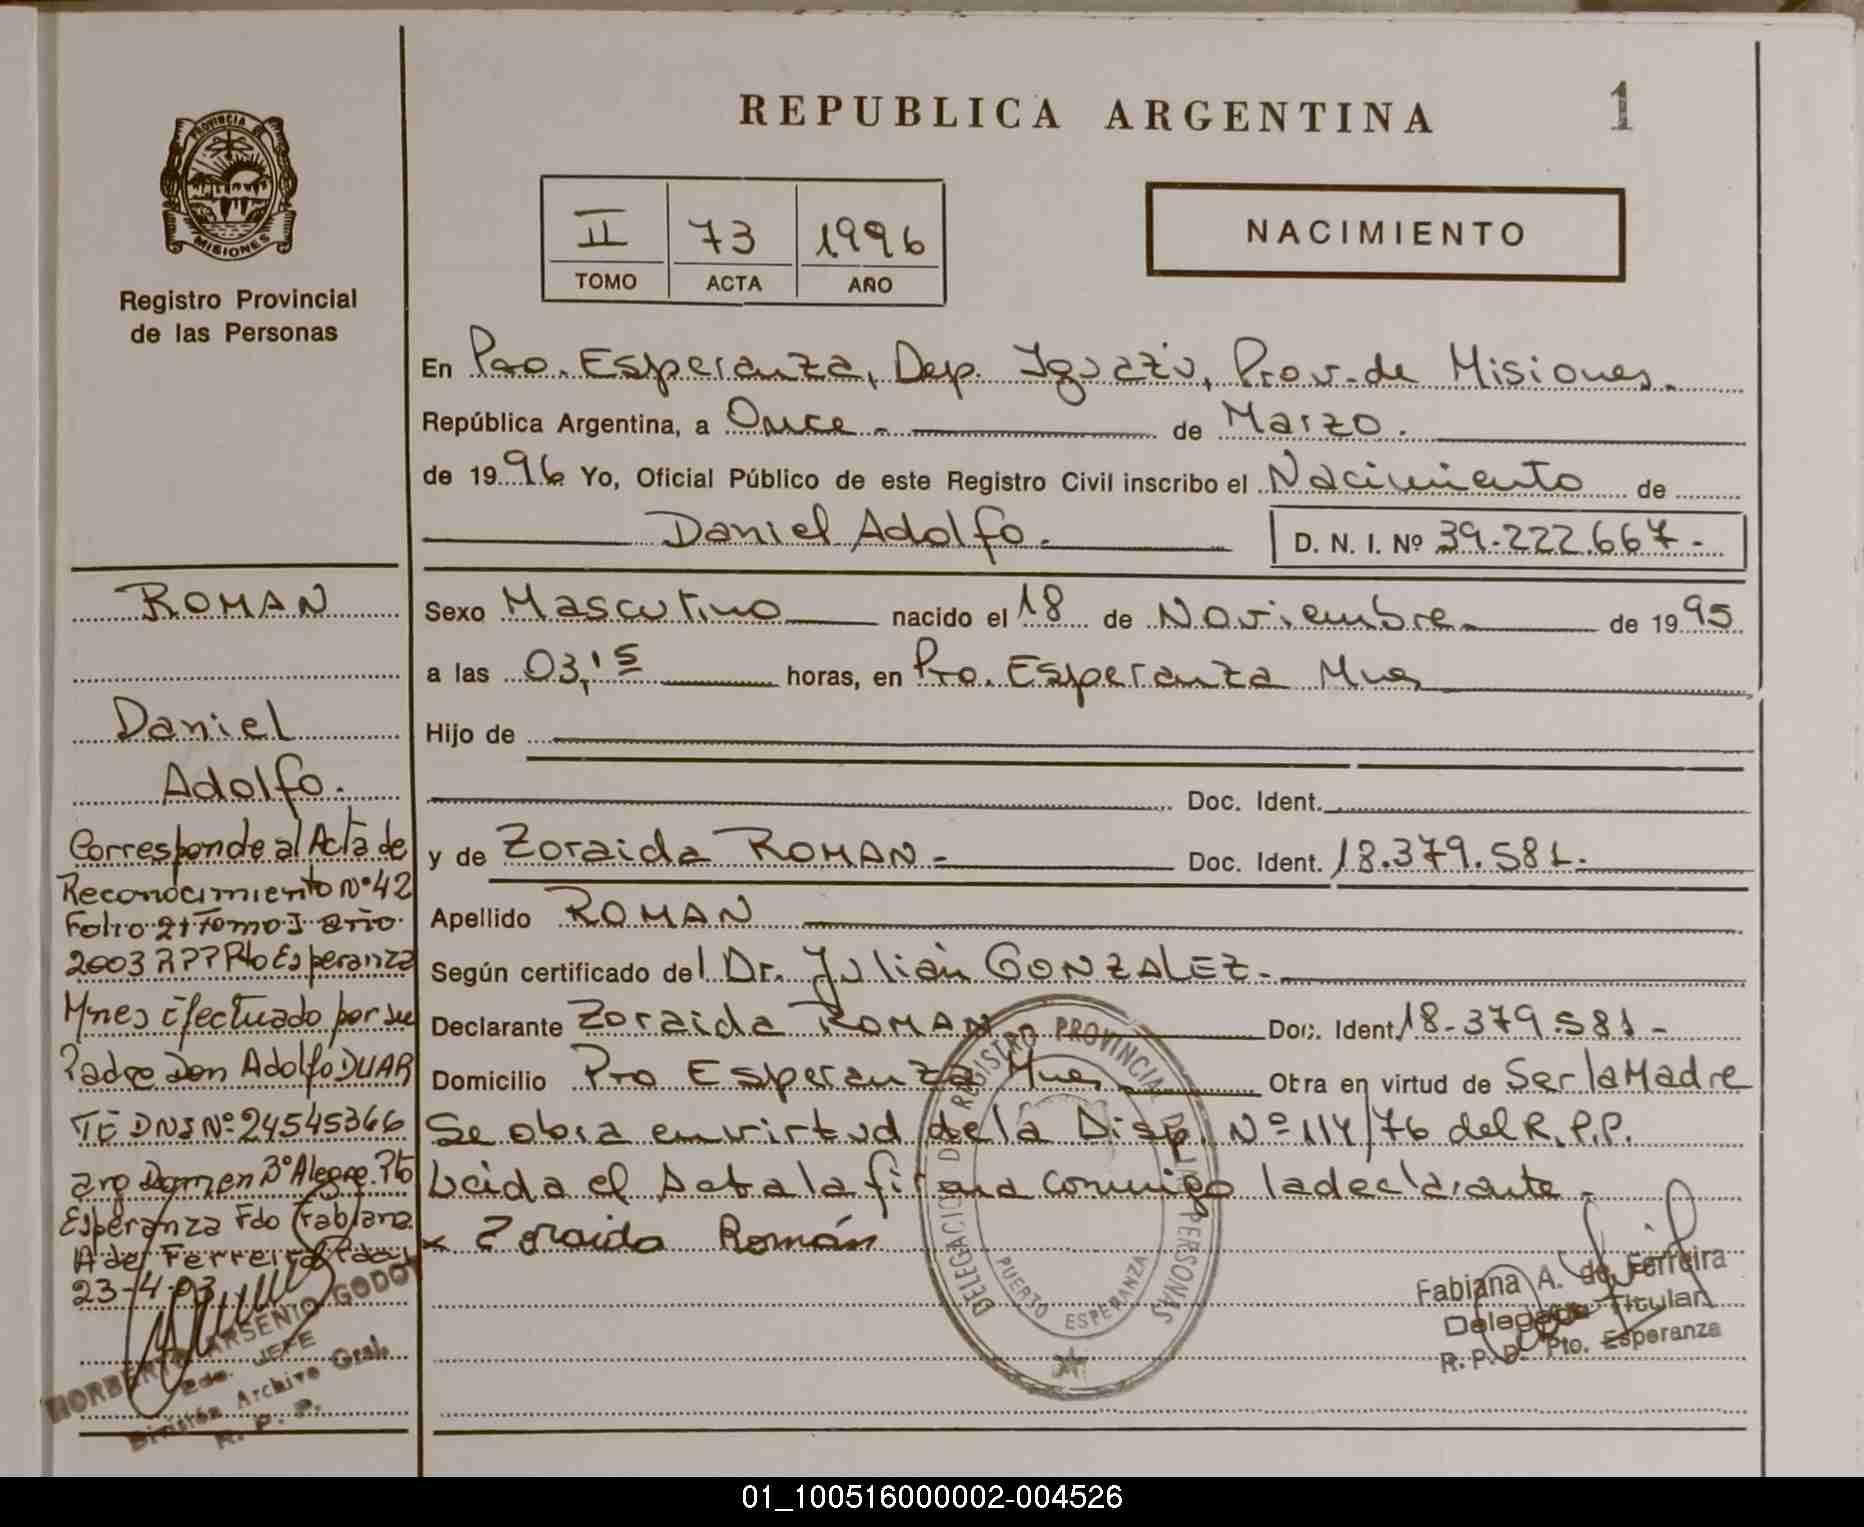 REPUBLICA ARGENTINA
1
PROVINCIA DE
MISIONES
Registro Provincial
de las Personas
II 73 1996
TOMO ACTA AÑO
NACIMIENTO
En Pto. Esperanza, Dep. Iguazú, Prov. de Misiones.
República Argentina, a Once.- de Marzo.
de 1996 Yo, Oficial Público de este Registro Civil inscribo el Nacimiento de
Daniel Adolfo.
D. N. I. Nº 39.222.667.-
Sexo Masculino nacido el 18 de Noviembre de 1995
a las 03,15 horas, en Pto. Esperanza Mnes
Hijo de
Doc. Ident.
y de Zoraida ROMAN.- Doc. Ident. 18.379.581.-
Apellido ROMAN
Según certificado del Dr. Julián GONZALEZ.-
Declarante Zoraida ROMAN Doc. Ident. 18.379.581-
Domicilio Pto Esperanza Mnes Otra en virtud de Ser la Madre
Se obra en virtud de la Disp. Nº 114/76 del R.P.P.
Leida el Acta la firma conmigo la declarante.-
x Zoraida Román
DELEGACION DE REGISTRO PROVINCIAL DE LAS PERSONAS
PUERTO ESPERANZA
Fabiana A. de Ferreira
Delegada Titular
R.P.P. Pto. Esperanza
ROMAN
Daniel
Adolfo.
Corresponde al Acta de
Reconocimiento Nº 42
Folio 21 Tomo I año
2003 RPP Pto Esperanza
Mnes Efectuado por su
Padre Don Adolfo DUAR
TE DNI Nº 24545366
arg Dom en Bº Alegre Pto
Esperanza Fdo Fabiana
A de Ferreira
23-4-03
NORBERTO ARSENIO GODOY
JEFE
División Archivo Gral.
R. P. P.
01_100516000002-004526